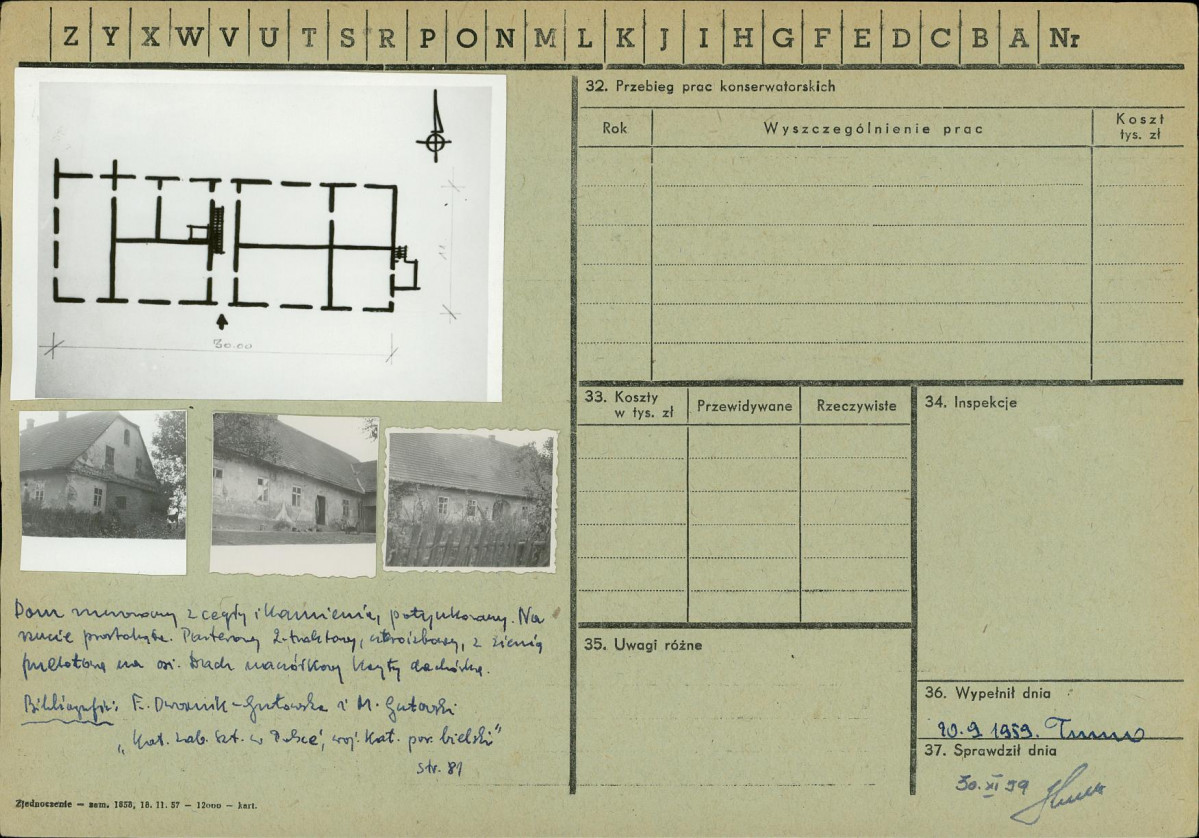 Z Y X W V U T S R P O N M L K J I H G F E D C B A Nr
30.00
Dom murowany z cegły i kamienia, potynkowany. Na
rzucie prostokąta. Parterowy 2-traktowy, z sienią
przelotową na osi. Dach kryty dachówką.
Bibliografia: E. Dwornik-Gutowska i M. Gutowski
"Kat. zab. szt. w Polsce, woj. kat. pow. bielski"
str. 81
Zjednoczenie — zam. 1858, 18. 11. 57 — 12000 — kart.
32. Przebieg prac konserwatorskich
Rok
Wyszczególnienie prac
Koszt
tys. zł
33. Koszty
w tys. zł
Przewidywane
Rzeczywiste
34. Inspekcje
35. Uwagi różne
36. Wypełnił dnia
20.9 1959.
37. Sprawdził dnia
30. XI 59